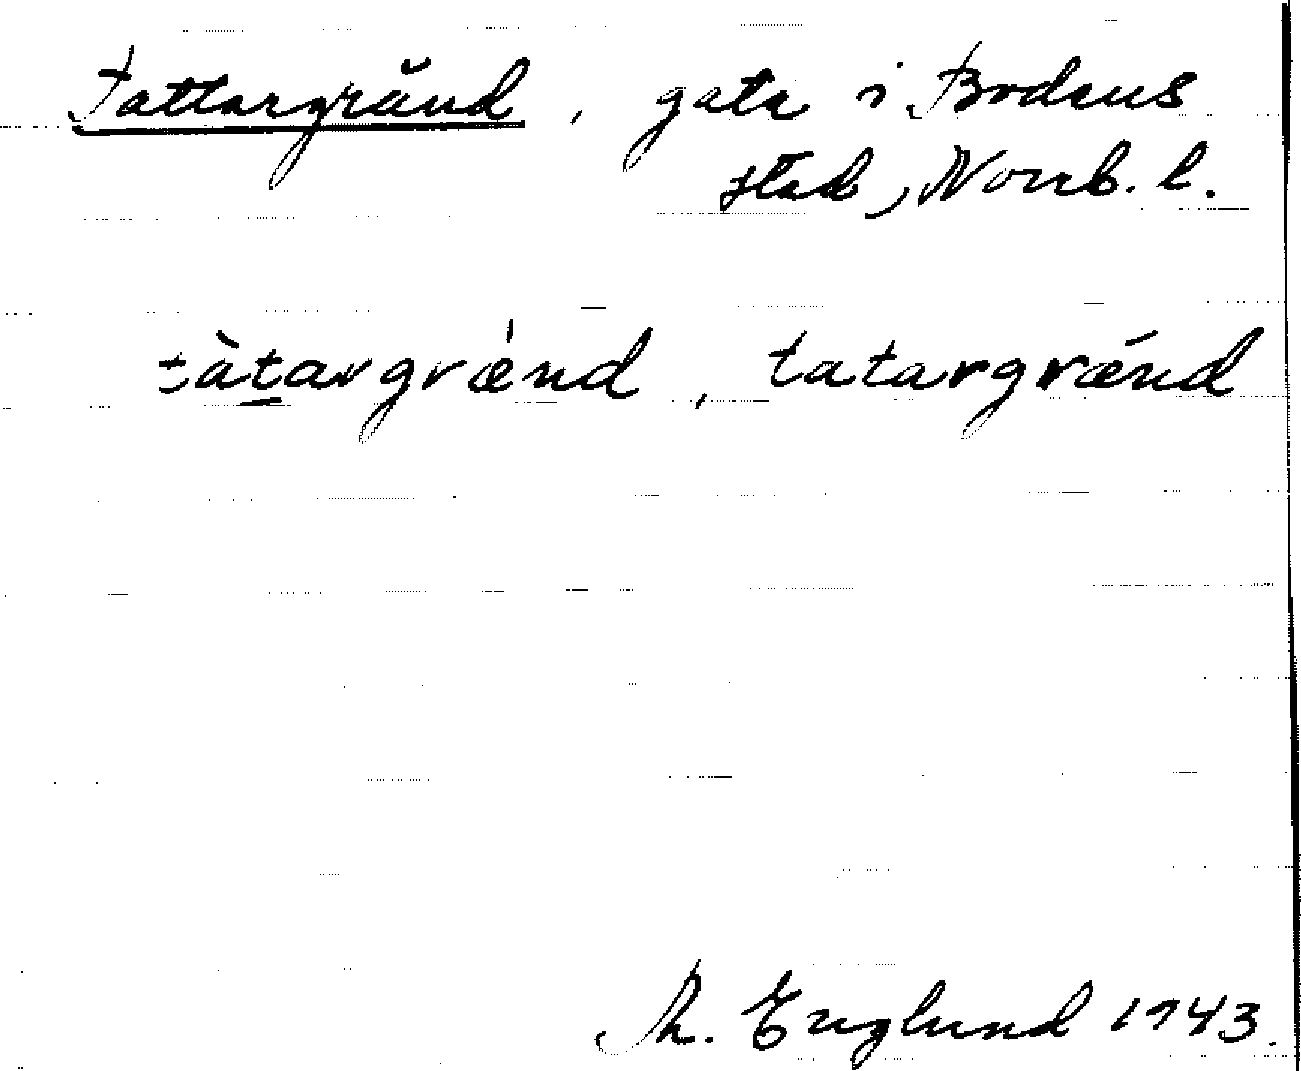 Tattargränd, gata i Bodens
stad, Norrb. l.
tàtargrǽnd, tatargrǽnd
M. Englund 1943.